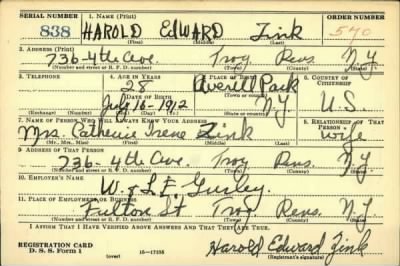 SERIAL NUMBER 1. NAME (Print) ORDER NUMBER
838 HAROLD EDWARD Zink 570
(First) (Middle) (Last)
2. ADDRESS (Print)
736-4th Ave. Troy Rens. N.Y
(Number and street or R. F. D. number) (Town) (County) (State)
3. TELEPHONE 4. AGE IN YEARS 5. PLACE OF BIRTH 6. COUNTRY OF CITIZENSHIP
28 Averill Park
DATE OF BIRTH (Town or county)
July 16-1912 N.Y. U.S.
(Exchange) (Number) (Mo.) (Day) (Yr.) (State or country)
7. NAME OF PERSON WHO WILL ALWAYS KNOW YOUR ADDRESS 8. RELATIONSHIP OF THAT PERSON
Mrs. Catherine Irene Zink Wife
(Mr., Mrs., Miss) (First) (Middle) (Last)
9. ADDRESS OF THAT PERSON
736-4th Ave. Troy Rens. N.Y
(Number and street or R. F. D. number) (Town) (County) (State)
10. EMPLOYER'S NAME
W. & L. E. Gurley.
11. PLACE OF EMPLOYMENT OR BUSINESS
Fulton St Troy Rens. N.Y
(Number and street or R. F. D. number) (Town) (County) (State)
I AFFIRM THAT I HAVE VERIFIED ABOVE ANSWERS AND THAT THEY ARE TRUE.
REGISTRATION CARD
D. S. S. Form 1 (over) Harold Edward Zink
(Registrant's signature)